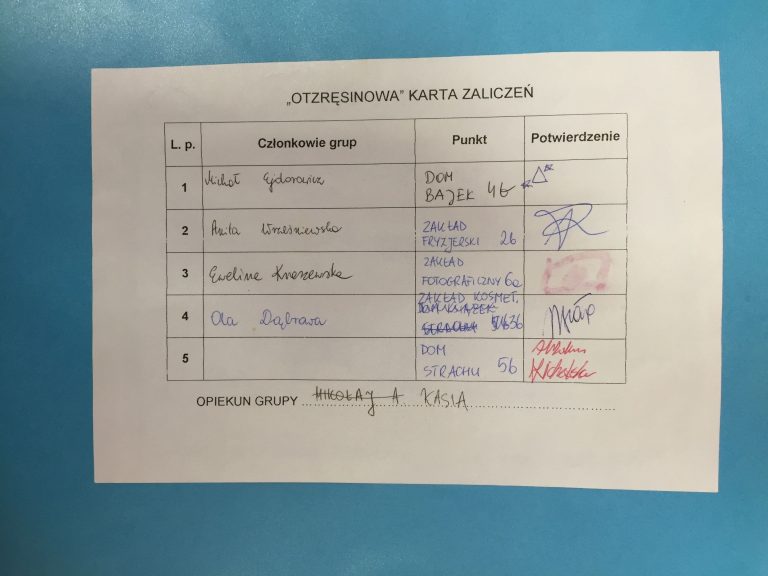 „OTZRĘSINOWA” KARTA ZALICZEŃ
L. p. Członkowie grup Punkt Potwierdzenie
1 Michał DOM
BAJEK 4b
2 Anita Wrześniewska ZAKŁAD
FRYZJERSKI 2b
3 Ewelina Kraszewska ZAKŁAD
FOTOGRAFICZNY 6a
4 Ola Dąbrawa ZAKŁAD KOSMET.
3b
5 DOM
STRACHU 5b
OPIEKUN GRUPY MIKOŁAJ A KASIA